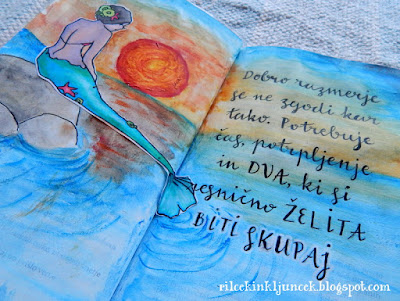 Dobro razmerje
se ne zgodi kar
tako. Potrebuje
čas, potrpljenje
in DVA, ki si
resnično ŽELITA
BITI SKUPAJ
rilcekinkljuncek.blogspot.com